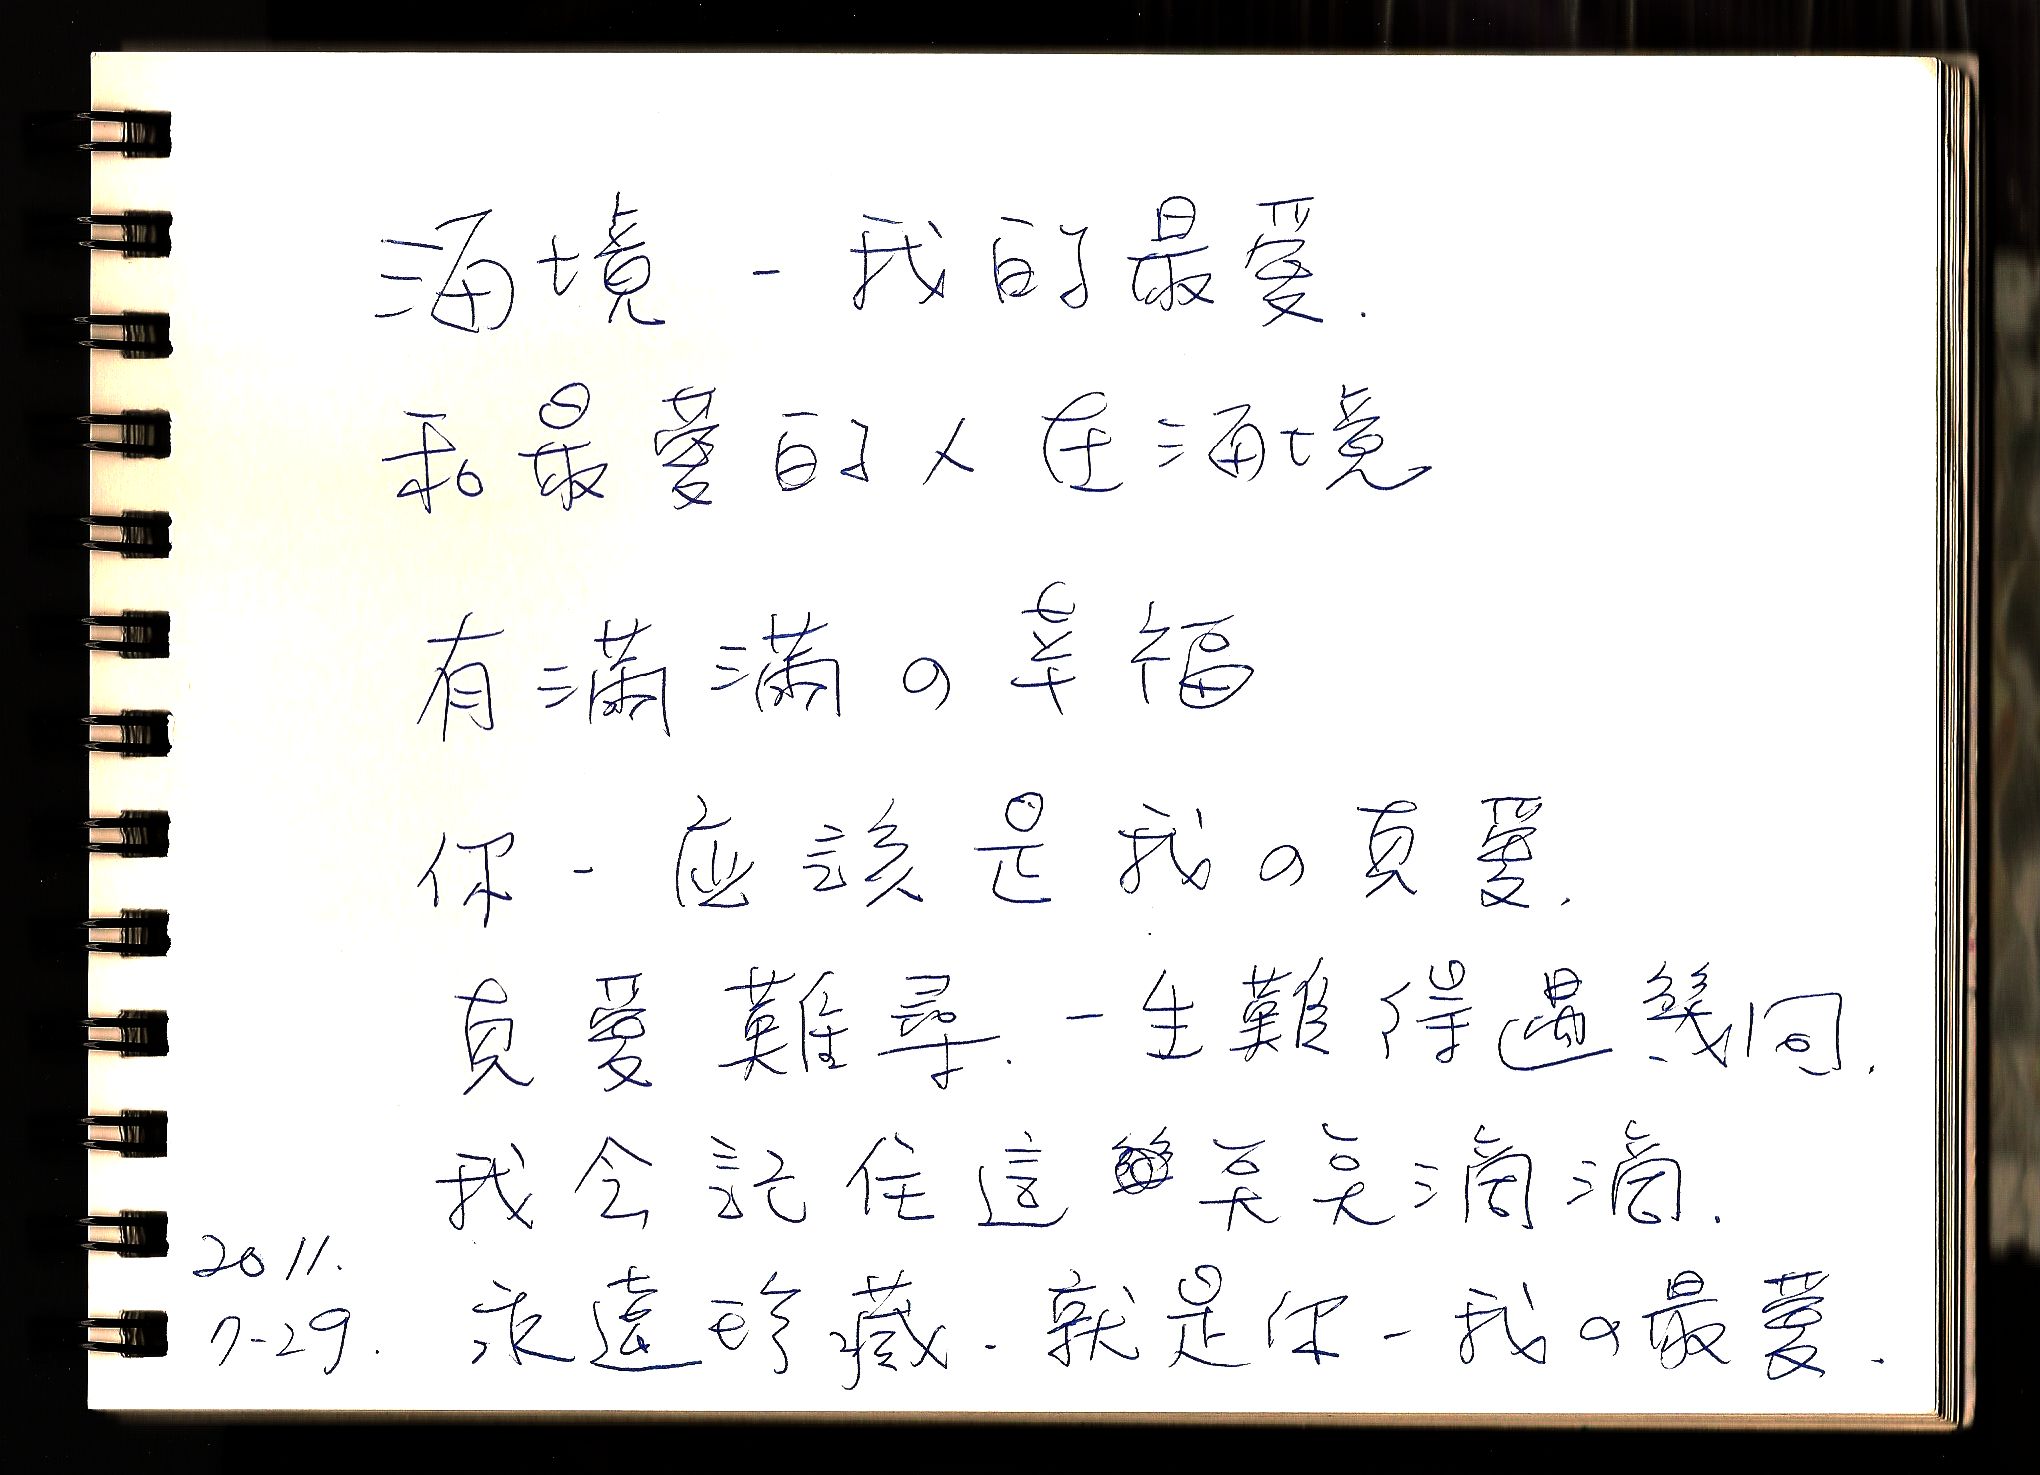 海境-我的最愛.
和最愛的人在海境
有滿滿の幸福
你-應該是我の真愛.
真愛難尋.一生難得遇幾回.
我会記住這点点滴滴.
永遠珍藏.就是你-我の最愛.
2011.
7-29.